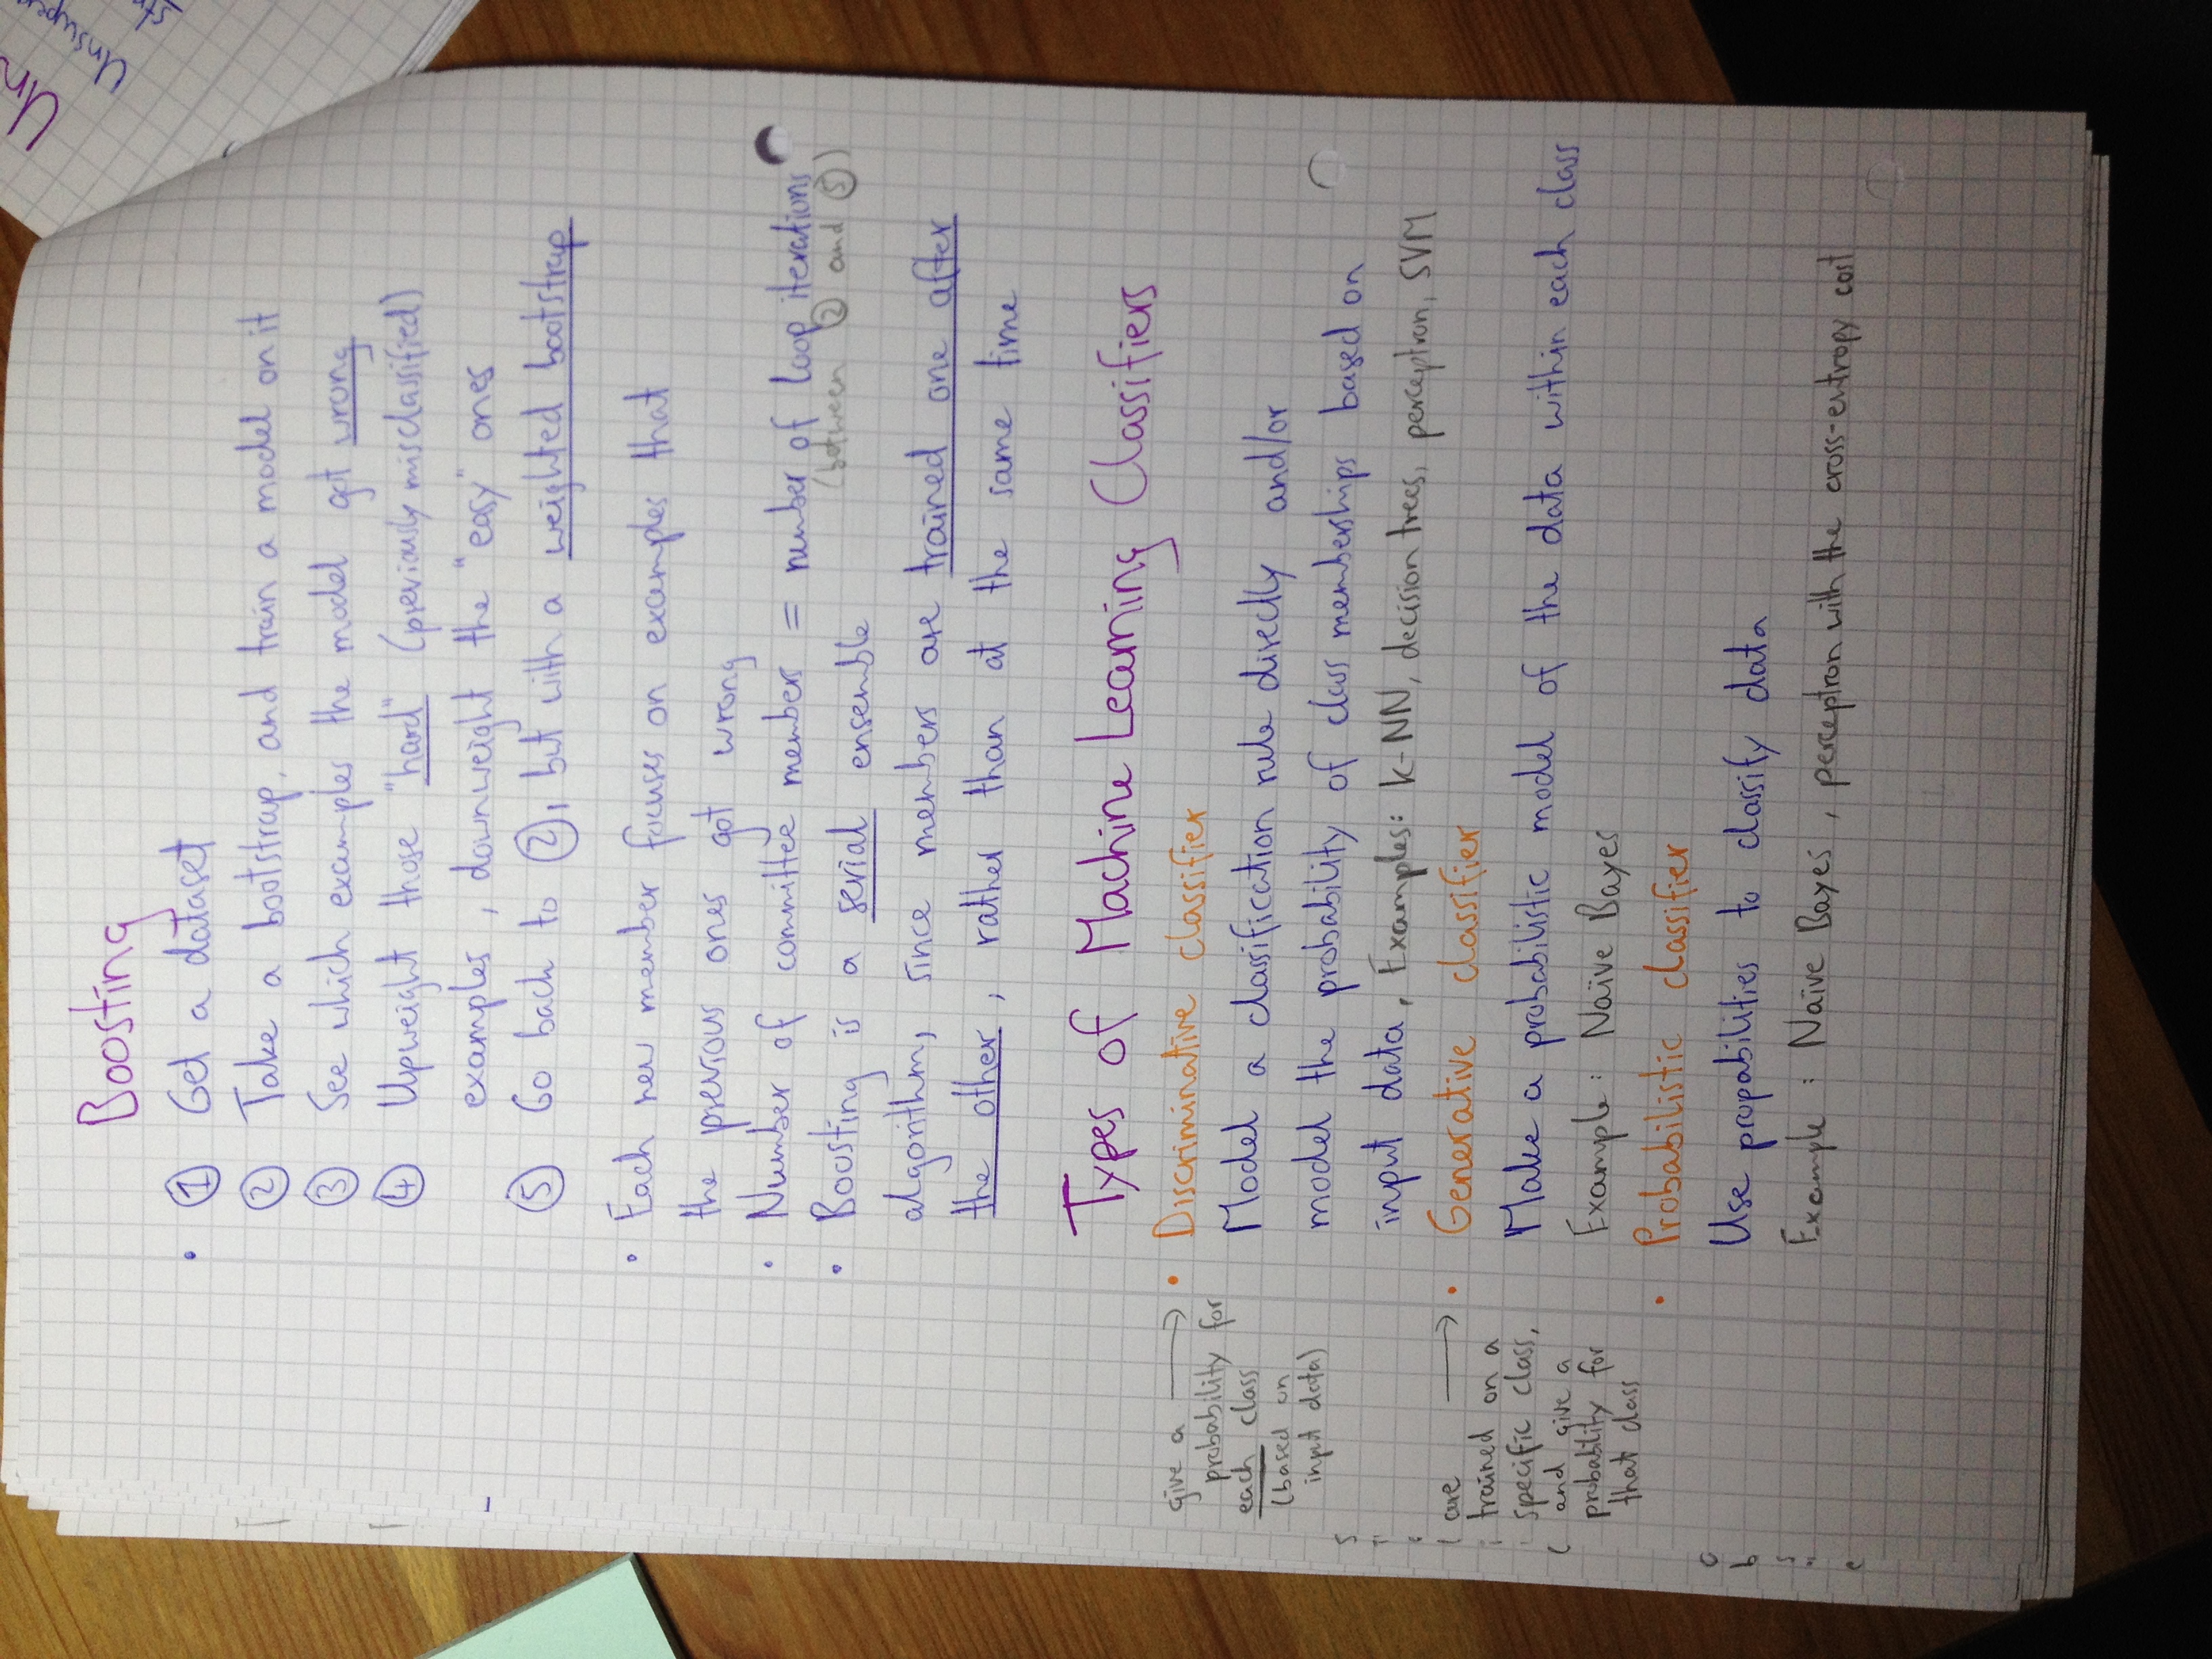 Boosting
• ① Get a dataset
② Take a bootstrap, and train a model on it
③ See which examples the model got wrong
④ Upweight those "hard" (previously misclassified)
examples, downweight the "easy" ones
⑤ Go back to ②, but with a weighted bootstrap
• Each new member focuses on examples that
the previous ones got wrong
• Number of committee members = number of loop iterations
(between ② and ⑤)
• Boosting is a serial ensemble
algorithm, since members are trained one after
the other, rather than at the same time
Types of Machine Learning Classifiers
• Discriminative classifier
Model a classification rule directly and/or
model the probability of class memberships based on
input data, Examples: k-NN, decision trees, perceptron, SVM
give a →
probability for
each class
(based on
input data)
• Generative classifier
Make a probabilistic model of the data within each class
Example: Naïve Bayes
are →
trained on a
specific class,
and give a
probability for
that class
• Probabilistic classifier
Use propabilities to classify data
Example: Naïve Bayes, perceptron with the cross-entropy cost
Un
Unsuper